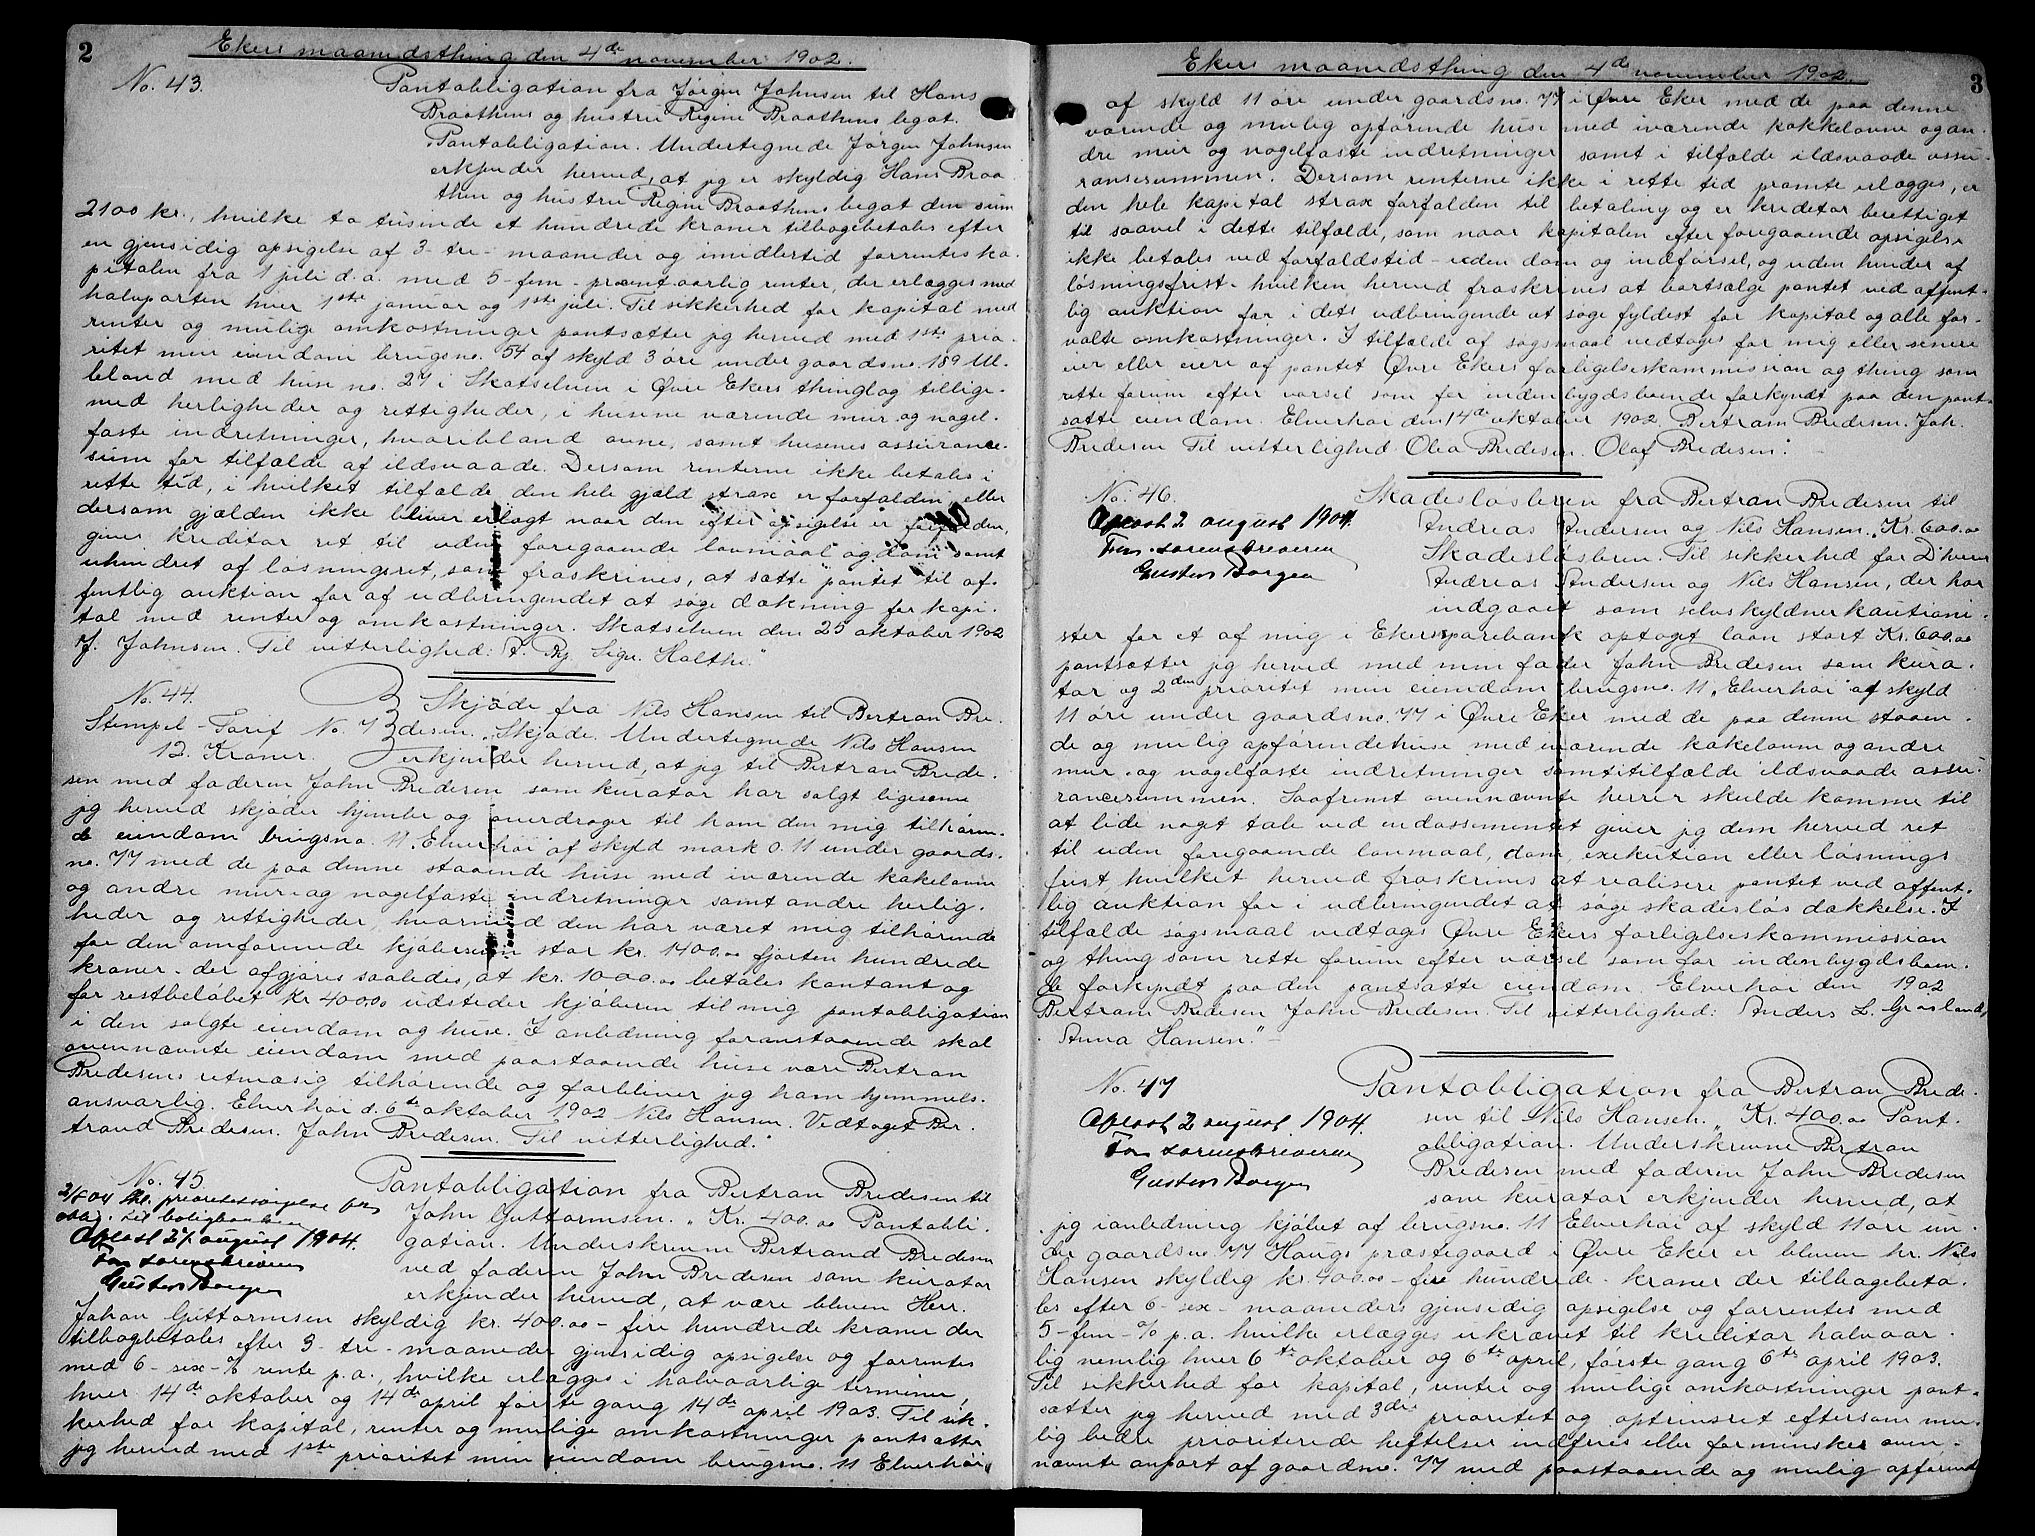 2
Ekers maanedsthing den 4de november 1902.
No. 43.
Pantobligation fra Jørgen Johnsen til Hans
Braathens og hustru Regine Braathens legat.
"Pantobligation. Undertegnede Jørgen Johnsen
erkjender herved, at jeg er skyldig Hans Braa-
then og hustru Regine Braathens legat den sum
2100 kr., hvilke to tusinde et hundrede kroner tilbagebetales efter
en gjensidig opsigelse af 3 - tre - maaneder og imidlertid forrentes ka-
pitalen fra 1 juli d.a. med 5 - fem - procent aarlig renter, der erlægges med
halvparten hver 1ste januar og 1ste juli. Til sikkerhed for kapital med
renter og mulige omkostninger pantsætter jeg herved med 1ste prio-
ritet min eiendom brugsno. 54 af skyld 3 øre under gaardsno. 189 Ul-
bland med hus no. 27 i Skotselven i Øvre Ekers thinglag tillige-
med herligheder og rettigheder, i husene værende mur og nagel-
faste indretninger, hvoriblandt ovne, samt husenes assurance-
sum for tilfælde af ildsvaade. Dersom renterne ikke betales i
rette tid, i hvilket tilfælde den hele gjæld strax er forfalden, eller
dersom gjælden ikke bliver erlagt naar den efter opsigelse er forfalden,
giver kreditor ret til uden foregaaende lovmaal og dom samt
uhindret af løsningsret, som fraskrives, at sætte pantet til of-
fentlig auktion for af udbringendet at søge dækning for kapi-
tal med renter og omkostninger. Skotselven den 25 oktober 1902
J. Johnsen. Til vitterlighed: Sign. Holthe."
No. 44.
Stempel-Tarif No. 7
12. Kroner.
Skjøde fra Nils Hansen til Bertran Bre-
desen. "Skjøde. Undertegnede Nils Hansen
erkjender herved, at jeg til Bertran Brede-
sen med faderen John Bredesen som kurator har solgt ligesom
jeg herved skjøder hjemler og overdrager til ham den mig tilhøren-
de eiendom brugsno. 11. Elverhøi af skyld mark 0.11 under gaards-
no. 77 med de paa denne staaende huse med iværende kakelovne
og andre mur- og nagelfaste indretninger samt andre herlig-
heder og rettigheder, hvormed den har været mig tilhørende
for den omforenede kjøbesum stor kr. 1400.00 fjorten hundrede
kroner - der afgjøres saaledes, at kr. 1000.00 betales kontant og
for restbeløbet kr 400.00 udsteder kjøberen til mig pantobligation
i den solgte eiendom og huse. I anledning foranstaaende skal
ovennævnte eiendom med paastaaende huse være Bertran
Bredesens retmæsig tilhørende og forbliver jeg ham hjemmels-
ansvarlig. Elverhøi d. 6te oktober 1902 Nils Hansen. Vedtaget Ber-
trand Bredesen. John Bredesen. Til vitterlighed:"
No. 45.
Aflæst 27. august 1904.
For sorenskriveren
Gustav Borgen
Pantobligation fra Bertran Bredesen til
John Guttormsen. "Kr. 400.00 Pantobli-
gation. Underskrevne Bertrand Bredesen
ved faderen John Bredesen som kurator
erkjender herved, at være bleven Herr.
Johan Guttormsen skyldig kr. 400.00 - fire hundrede kroner der
tilbagebetales efter 3 - tre - maaneder gjensidig opsigelse og forrentes
med 6 - sex - % rente p.a., hvilke erlægges i halvaarlige terminer,
hver 14de oktober og 14de april første gang 14de april 1903. Til sik-
kerhed for kapital, renter og mulige omkostninger pantsætter
jeg herved med 1ste prioritet min eiendom brugsno. 11 Elverhøi,
3
Ekers maanedsthing den 4de november 1902.
af skyld 11 øre under gaardsno. 77 i Øvre Eker med de paa denne
værende og mulig opførende huse med iværende kakkelovne og an-
dre mur og nagelfaste indretninger samt i tilfælde ildsvaade assu-
rancesummen. Dersom renterne ikke i rette tid promte erlægges, er
den hele kapital strax forfalden til betaling og er kreditor berettiget
til saavel i dette tilfælde, som naar kapitalen efter foregaaende opsigelse
ikke betales ved forfaldstid - uden dom og indførsel, og uden hinder af
løsningsfrist - hvilken herved fraskrives at bortsælge pantet ved offent-
lig auktion for i dets udbringende at søge fyldest for kapital og alle for-
voldte omkostninger. I tilfælde af søgsmaal vedtages for mig eller senere
eier eller eiere af pantet Øvre Ekers forligelseskommission og thing som
rette forum efter varsel som for indenbygdsboende forkyndt paa den pant-
satte eiendom. Elverhøi den 14de oktober 1902. Bertram Bredesen. Joh.
Bredesen Til vitterlighed Olea Bredesen. Olaf Bredesen."
No. 46.
Aflæst 2 august 1904.
For sorenskriveren
Gustav Borgen
Skadesløsbrev fra Bertran Bredesen til
Andreas Andersen og Nils Hansen. "Kr. 600.00
Skadesløsbrev. Til sikkerhed for D'herrer
Andreas Andersen og Nils Hansen, der har
indgaaet som selvskyldnerkautioni-
ster for et af mig i Ekers sparebank optaget laan stort Kr. 600.00
pantsætter jeg herved med min fader John Bredesen som kura-
tor og 2den prioritet min eiendom brugsno. 11 "Elverhøi" af skyld
11 øre under gaardsno. 77 i Øvre Eker med de paa denne staaen-
de og mulig opførende huse med iværende kakelovne og andre
mur- og nagelfaste indretninger samt i tilfælde ildsvaade assu-
rancesummen. Saafremt ovennævnte herrer skulde komme til
at lide noget tab ved endossementet giver jeg dem herved ret
til uden foregaaende lovmaal, dom, exekution eller løsnings
frist, hvilket herved fraskrives at realisere pantet ved offent-
lig auktion for i udbringendet at søge skadesløs dækkelse. I
tilfælde søgsmaal vedtages Øvre Ekers forligelseskommission
og thing som rette forum efter varsel som for indenbygdsboen-
de forkyndt paa den pantsatte eiendom. Elverhøi den 1902
Bertram Bredesen John Bredesen. Til vitterlighed: Anders L. Grøsland,
Anna Hansen."
No. 47
Aflæst 2 august 1904.
For sorenskriveren
Gustav Borgen
Pantobligation fra Bertran Brede-
sen til Nils Hansen. "Kr. 400.00 Pant-
obligation. Underskrevne Bertran
Bredesen med faderen John Bredesen
som kurator erkjender herved, at
jeg i anledning kjøbet af brugsno. 11 Elverhøi af skyld 11 øre un-
der gaardsno. 77 Haugs præstegaard i Øvre Eker er bleven hr. Nils
Hansen skyldig kr. 400.00 - fire hundrede - kroner der tilbagebeta-
les efter 6 - sex - maaneders gjensidig opsigelse og forrentes med
5 - fem - % p.a. hvilke erlægges ukrævet til kreditor halvaar-
lig nemlig hver 6te oktober og 6te april, første gang 6te april 1903.
Til sikkerhed for kapital, renter og mulige omkostninger pant-
sætter jeg herved med 3die prioritet og optrinsret eftersom mu-
lig bedre prioriterede heftelser indfries eller forminskes oven-
nævnte anpart af gaardsno. 77 med paastaaende og mulig opførende